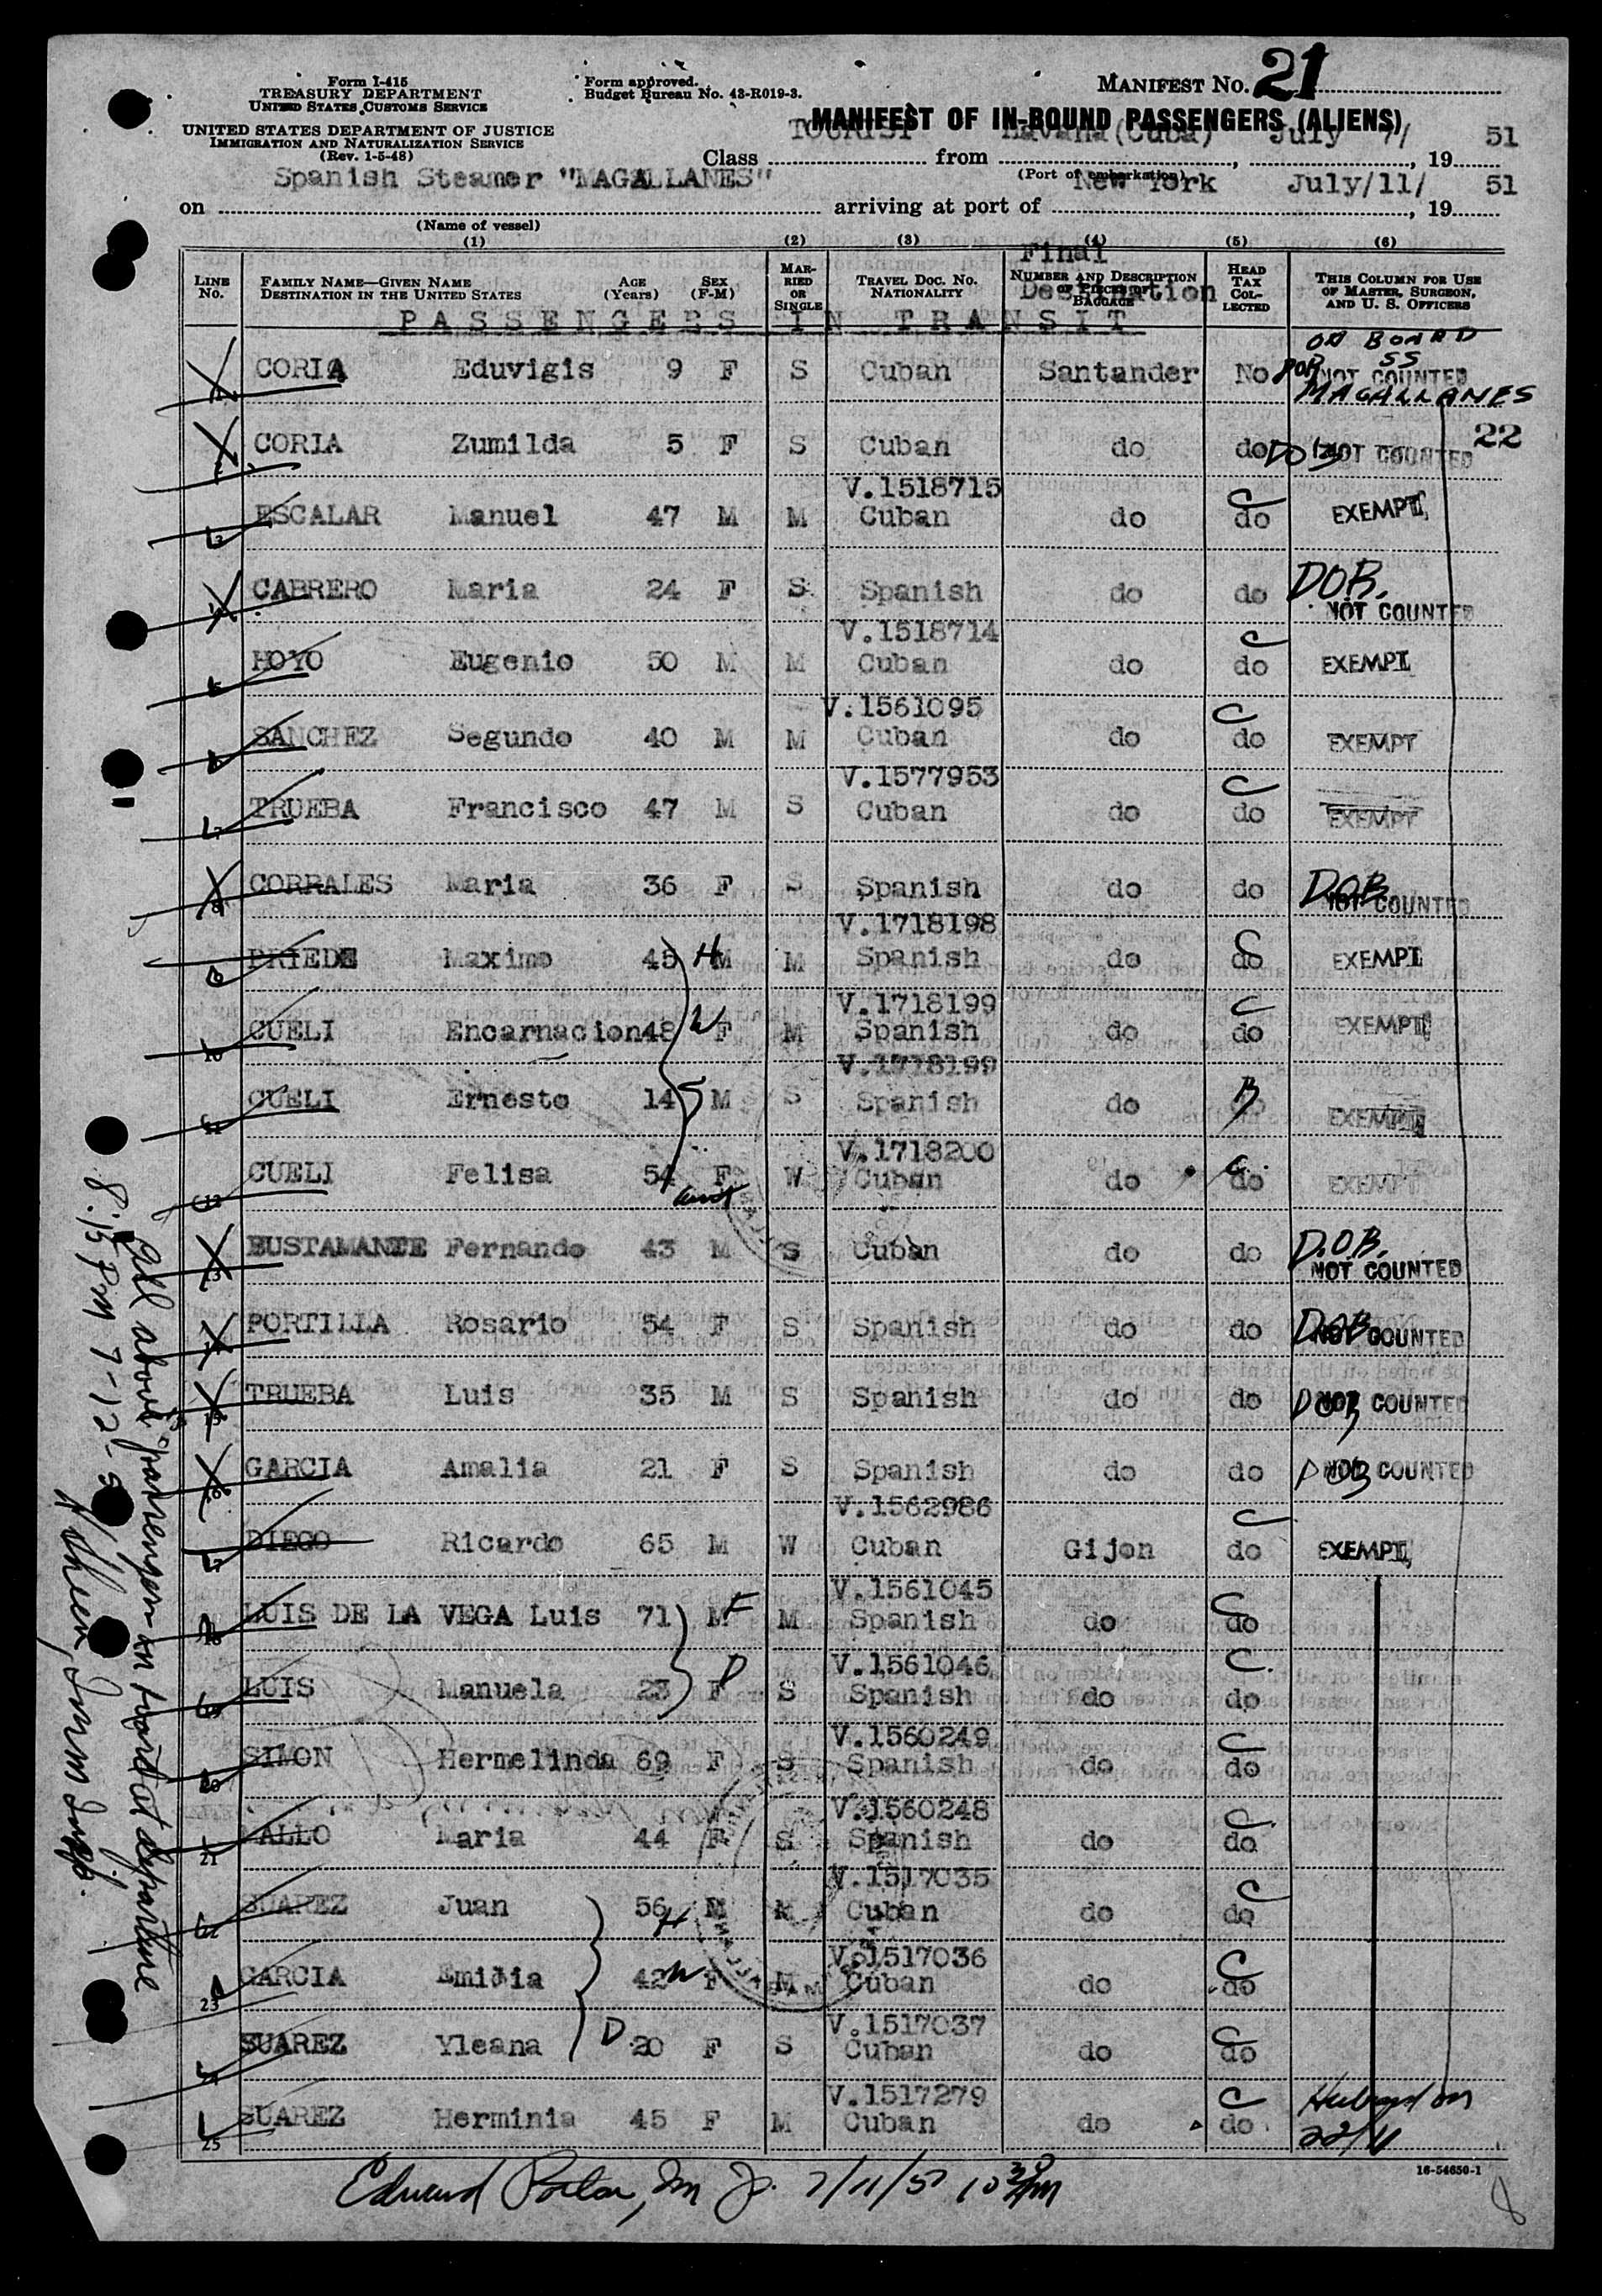 Form I-415
TREASURY DEPARTMENT
UNITED STATES CUSTOMS SERVICE
UNITED STATES DEPARTMENT OF JUSTICE
IMMIGRATION AND NATURALIZATION SERVICE
(Rev. 1-5-48)
Form approved.
Budget Bureau No. 43-R019-3.
MANIFEST NO. 21
MANIFEST OF IN-BOUND PASSENGERS (ALIENS)
Class TOURIST from Havana (Cuba) , July 7/ , 19 51
(Port of embarkation)
on Spanish Steamer "MAGALLANES" arriving at port of New York July/11/ , 19 51
(Name of vessel)
(1) (2) (3) (4) (5) (6)
LINE No. FAMILY NAME—GIVEN NAME DESTINATION IN THE UNITED STATES AGE (Years) SEX (F-M) MARRIED OR SINGLE TRAVEL DOC. NO. NATIONALITY NUMBER AND DESCRIPTION OF PIECES OF BAGGAGE Final Destination HEAD TAX COLLECTED THIS COLUMN FOR USE OF MASTER, SURGEON, AND U. S. OFFICERS
PASSENGERS IN TRANSIT
1 CORIA Eduvigis 9 F S Cuban Santander No DOB ON BOARD SS MAGALLANES NOT COUNTED
22
2 CORIA Zumilda 5 F S Cuban do do DOB NOT COUNTED
3 ESCALAR Manuel 47 M M V.1518715 Cuban do do C EXEMPT
4 CABRERO Maria 24 F S Spanish do do DOB. NOT COUNTED
5 HOYO Eugenio 50 M M V.1518714 Cuban do do C EXEMPT
6 SANCHEZ Segundo 40 M M V.1561095 Cuban do do C EXEMPT
7 TRUEBA Francisco 47 M S V.1577953 Cuban do do C EXEMPT
8 CORRALES Maria 36 F S Spanish do do DOB NOT COUNTED
PRIEDE Maximo 45 H M M V.1718198 Spanish do do C EXEMPT
10 CUELI Encarnacion 48 W F M V.1718199 Spanish do do C EXEMPT
11 CUELI Ernesto 14 S M S V.1718199 Spanish do B EXEMPT
12 CUELI Felisa 54 F aunt W V.1718200 Cuban do do C EXEMPT
13 BUSTAMANTE Fernando 43 M S Cuban do do D.O.B. NOT COUNTED
14 PORTILLA Rosario 54 F S Spanish do do DOB NOT COUNTED
15 TRUEBA Luis 35 M S Spanish do do DOB NOT COUNTED
16 GARCIA Amalia 21 F S Spanish do do DOB NOT COUNTED
17 DIEGO Ricardo 65 M W V.1562986 Cuban Gijon do C EXEMPT
18 LUIS DE LA VEGA Luis 71 M F M V.1561045 Spanish do do C
19 LUIS Manuela 23 F D S V.1561046 Spanish do do C
20 SIMON Hermelinda 69 F S V.1560249 Spanish do do C
21 Maria 44 F S V.1560248 Spanish do do C
22 SUAREZ Juan 56 H M M V.1517035 Cuban do do C
23 GARCIA Emilia 42 W F M V.1517036 Cuban do do C
24 SUAREZ Yleana D 20 F S V.1517037 Cuban do do C
25 SUAREZ Herminia 45 F M V.1517279 Cuban do do C Husband on 22/11
16-54650-1
Edward 7/11/51 10 30 PM
All above passengers on board at departure
8:15 PM 7-12-51
Imm Insp.